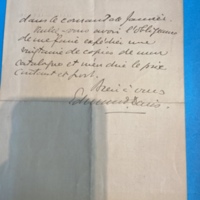 dans le courant de Janvier.
Veuillez-vous avoir l'obligeance
de me faire expédier une
vingtaine de copies de mon
catalogue et m'en dire le prix
content et port.
Bien à vous